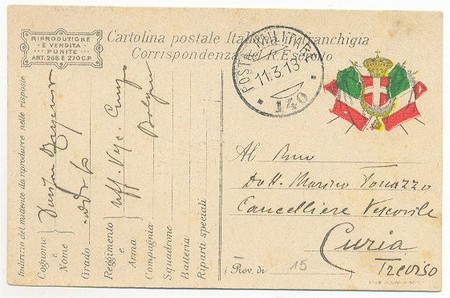 RIPRODUZIONE
E VENDITA
PUNITE
ART. 268 E 270 C.P.
Cartolina postale Italiana in franchigia
Corrispondenza del R. Esercito
POSTA MILITARE
11.3.1
140
Indirizzo del mittente da riprodurre nelle risposte
Cognome
e
Nome
Grado
Reggimento Uff.
e
Arma
Compagnia
Squadrone
Batteria
Riparti speciali
Al
Dott. Marino Tonazzo
Cancelliere Vescovile
Curia
Treviso
Prov. di 15